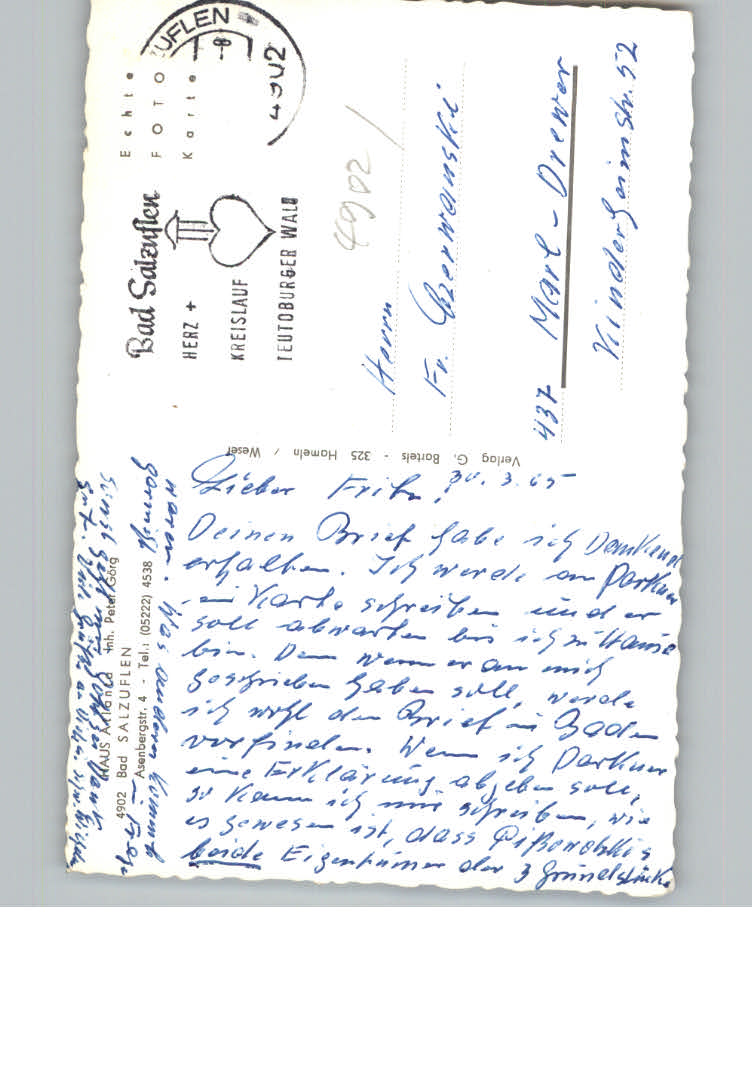 Echte
FOTO
Karte
UFLEN
4902
Bad Salzuflen
HERZ +
KREISLAUF
TEUTOBURGER WALD
4902 /
Herrn
Fr. Czerwanski
437 Marl-Drewer
Kinderheimstr. 52
Verlag G. Bartels - 325 Hameln / Weser
30.3.65
Lieber Fritz!
Deinen Brief habe ich Dankend
erhalten. Ich werde an
Karte schreiben und er
soll abwarten bis ich zu Hause
bin. Denn wenn er an mich
geschrieben haben soll, werde
ich wohl den Brief in Baden
vorfinden. Wenn ich
eine Erklärung abgeben soll,
so kann ich nur schreiben, wie
es gewesen ist, dass
beide Eigentümer der 3 Grundstücke
waren. Was anderes kommt
garnicht in Frage.
HAUS Inh. Peter Görg
4902 Bad SALZUFLEN
Asenbergstr. 4 - Tel.: (05222) 4538